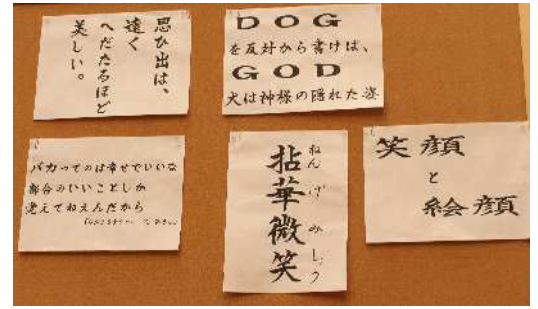 思ひ出は、
遠く
へだたるほど
美しい。
DOG
を反対から書けば、
GOD
犬は神様の隠れた姿
バカってのは幸せでいいな
都合のいいことしか
覚えてねえんだから
拈華微笑
ねんげみしょう
笑顔
と
絵顔